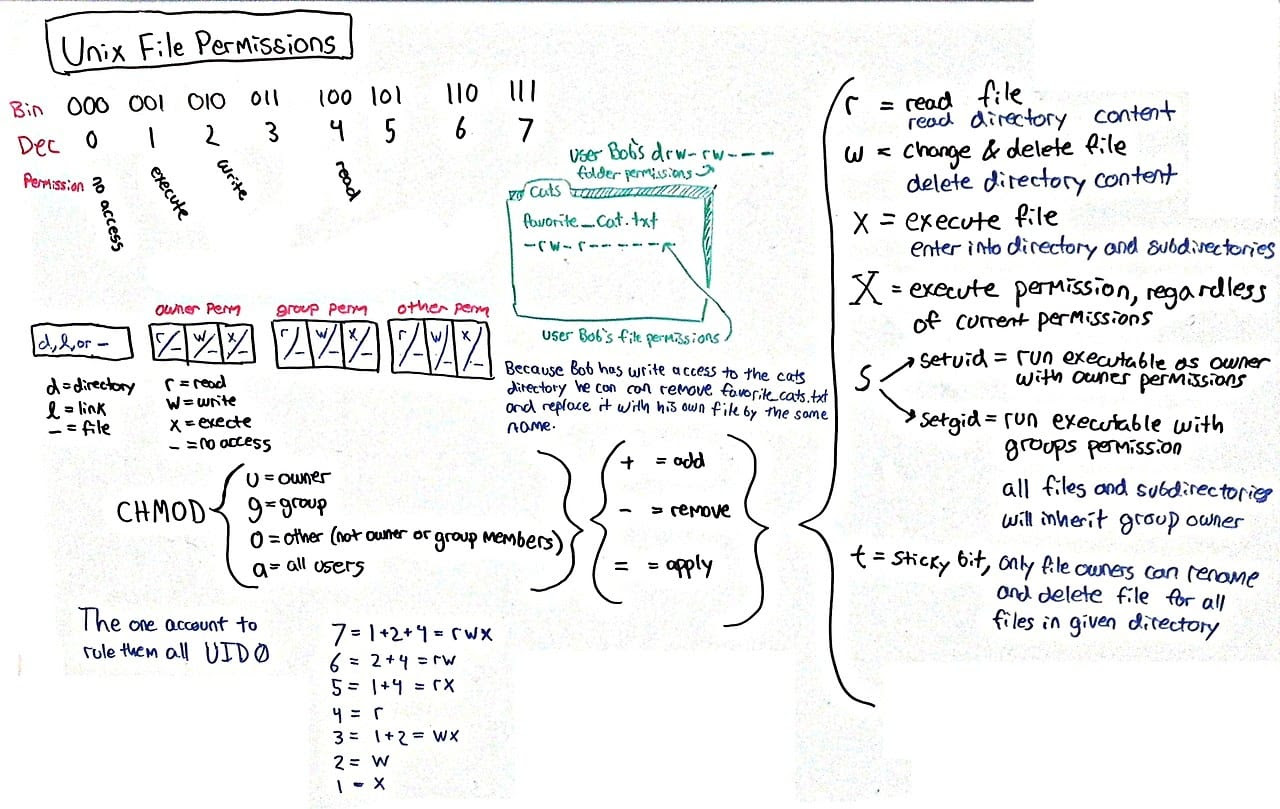 Unix File Permissions
Bin 000 001 010 011 100 101 110 111
Dec 0 1 2 3 4 5 6 7
Permission no access execute write read
User Bob's drw-rw----
folder permissions
cats
favorite_cat.txt
-rw-r------
User Bob's file permissions
Because Bob has write access to the cats
directory he can can remove favorite_cats.txt
and replace it with his own file by the same
name.
owner perm group perm other perm
d, l, or - r/- w/- x/- r/- w/- x/- r/- w/- x/-
d = directory
l = link
- = file
r = read
w = write
x = execte
- = no access
CHMOD
U = owner
g = group
O = other (not owner or group members)
a = all users
+ = add
- = remove
= = apply
r = read file
read directory content
w = change & delete file
delete directory content
x = execute file
enter into directory and subdirectories
X = execute permission, regardless
of current permissions
S
setuid = run executable as owner
with owner permissions
setgid = run executable with
groups permission
all files and subdirectories
will inherit group owner
t = sticky bit, only file owners can rename
and delete file for all
files in given directory
The one account to
rule them all UID0
7 = 1+2+4 = rwx
6 = 2+4 = rw
5 = 1+4 = rx
4 = r
3 = 1+2 = wx
2 = w
1 - x